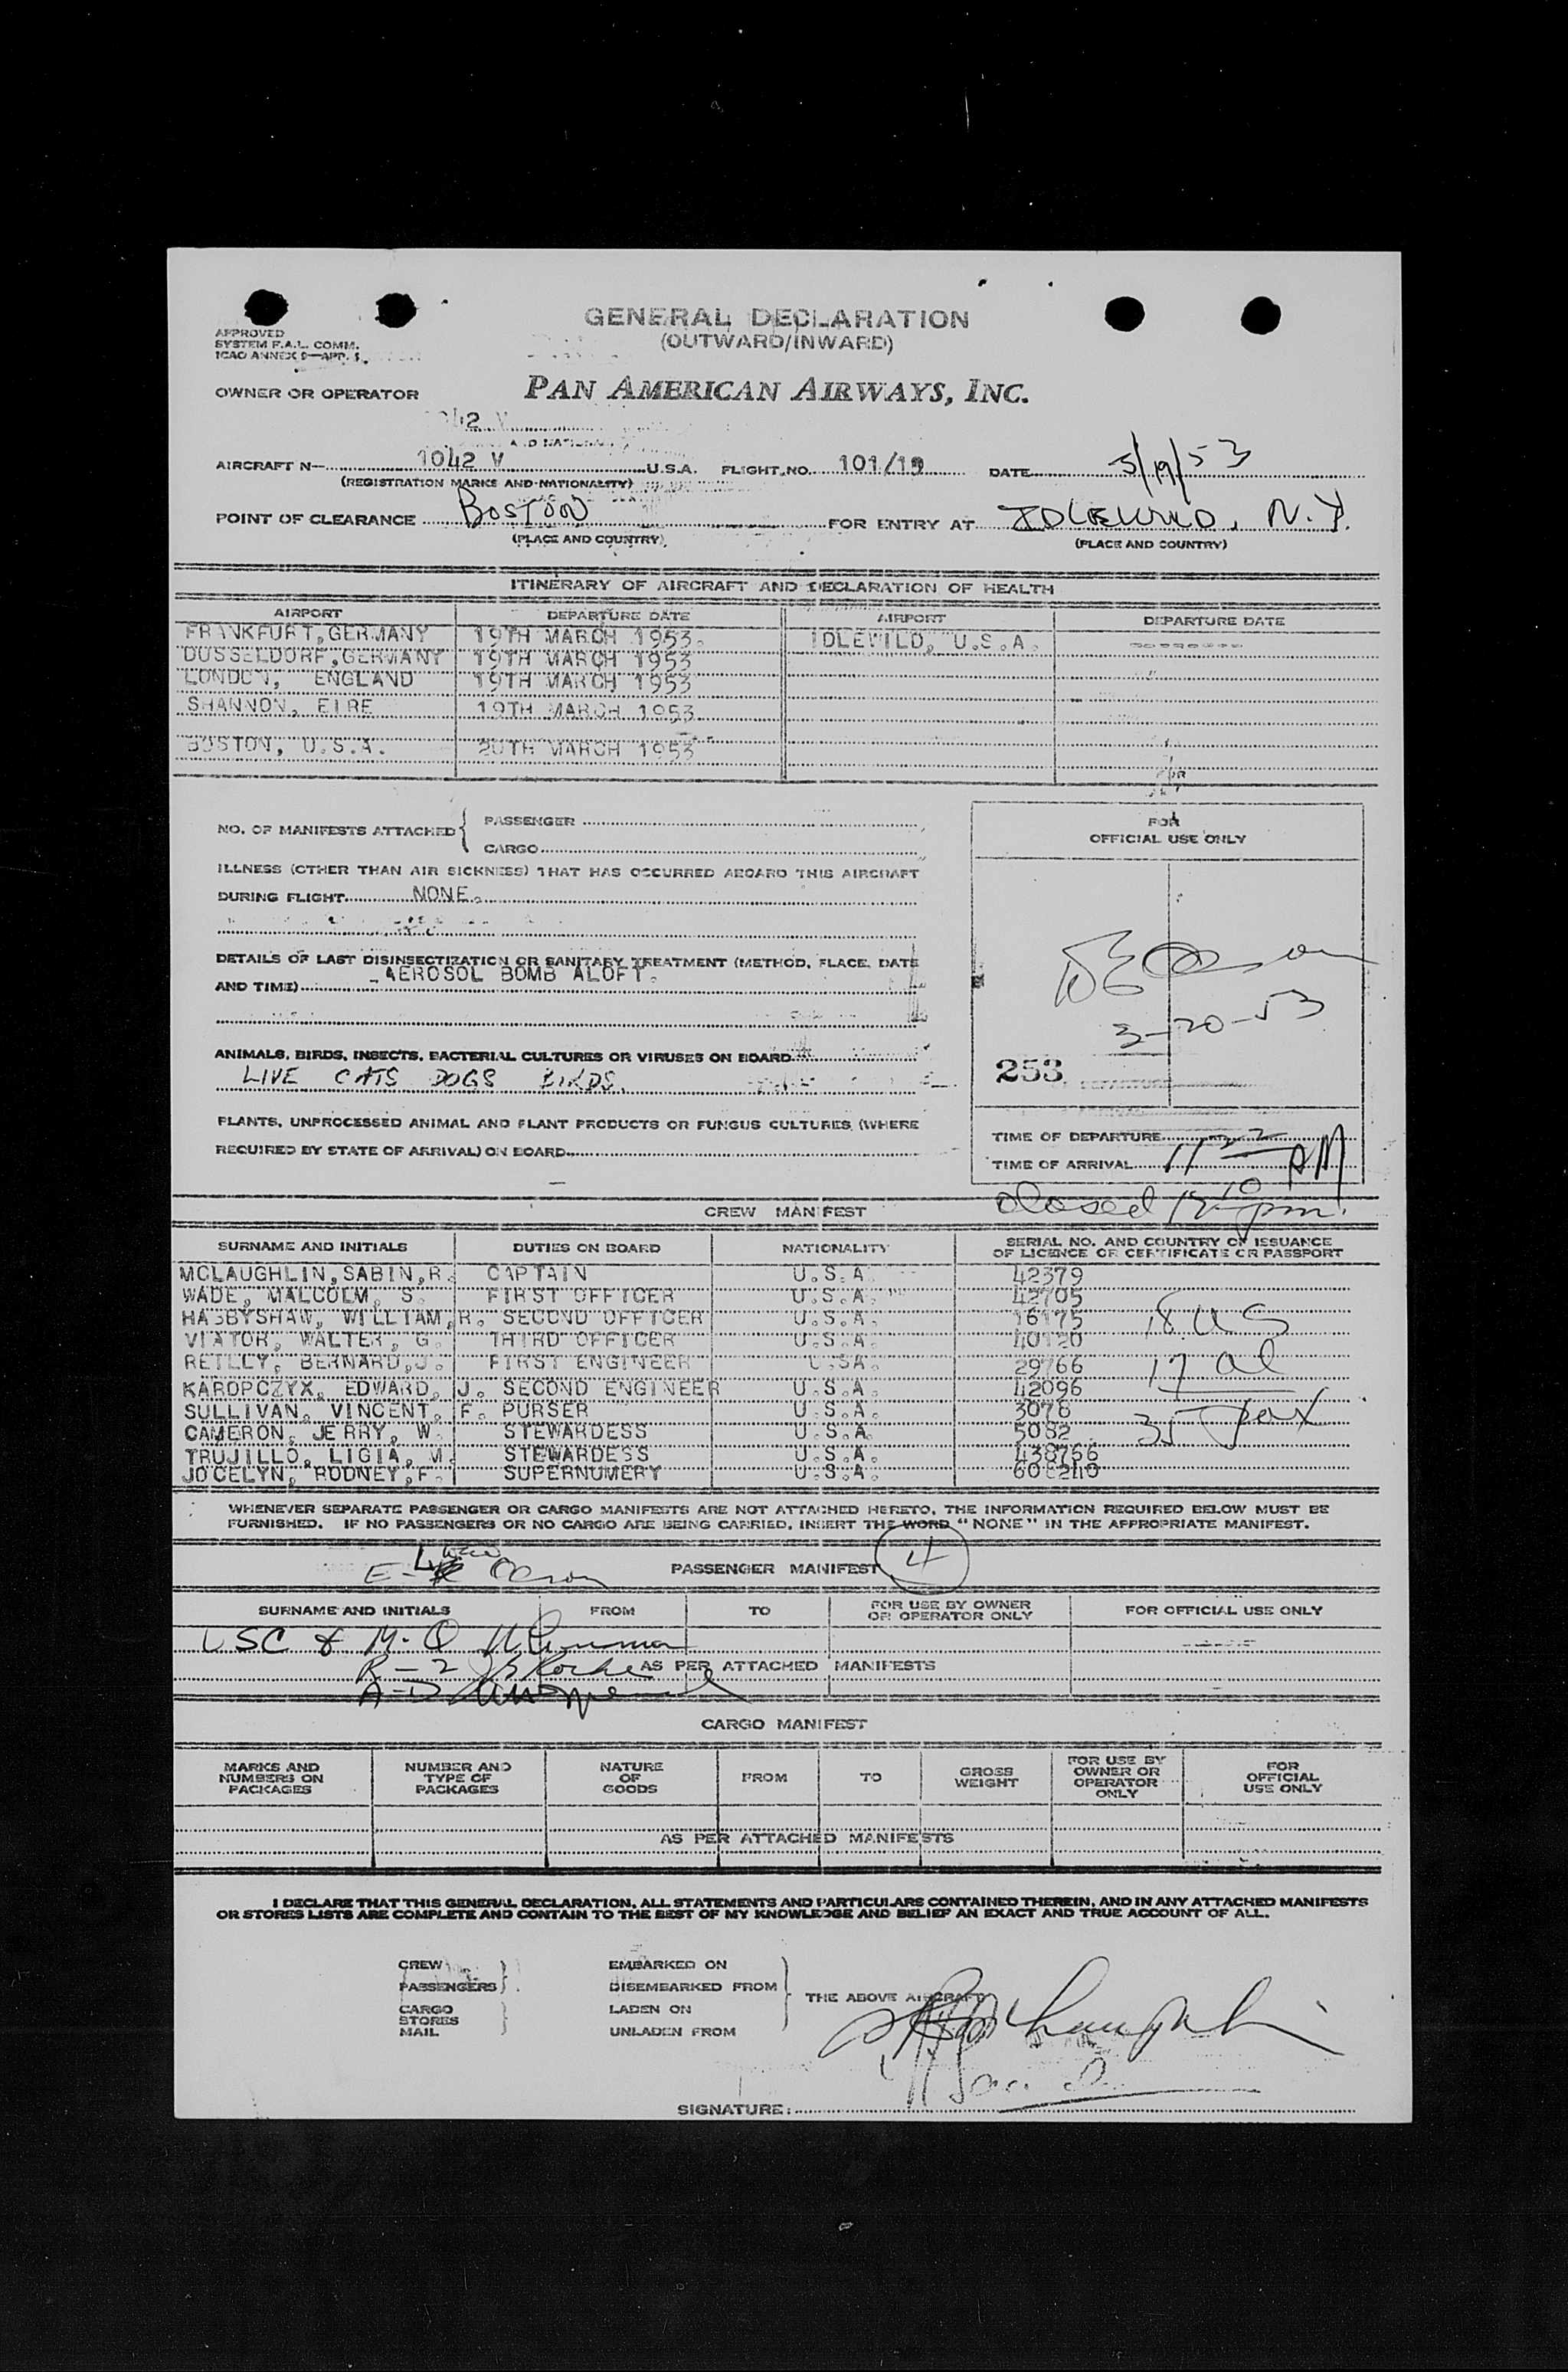 GENERAL DECLARATION
(OUTWARD/INWARD)
APPROVED
SYSTEM F.A.L. COMM.
ICAO ANNEX 9—APP. 1.
OWNER OR OPERATOR PAN AMERICAN AIRWAYS, INC.
AIRCRAFT N— 1042 V U.S.A. FLIGHT NO. 101/19 DATE 3/19/53
(REGISTRATION MARKS AND NATIONALITY)
POINT OF CLEARANCE BOSTON FOR ENTRY AT IDLEWILD, N.Y.
(PLACE AND COUNTRY) (PLACE AND COUNTRY)
ITINERARY OF AIRCRAFT AND DECLARATION OF HEALTH
AIRPORT DEPARTURE DATE AIRPORT DEPARTURE DATE
FRANKFURT, GERMANY 19TH MARCH 1953. IDLEWILD, U.S.A. --------
DUSSELDORF, GERMANY 19TH MARCH 1953
LONDON, ENGLAND 19TH MARCH 1953
SHANNON, EIRE 19TH MARCH 1953
BOSTON, U.S.A. 20TH MARCH 1953
NO. OF MANIFESTS ATTACHED { PASSENGER
CARGO
ILLNESS (OTHER THAN AIR SICKNESS) THAT HAS OCCURRED ABOARD THIS AIRCRAFT
DURING FLIGHT NONE.
DETAILS OF LAST DISINSECTIZATION OR SANITARY TREATMENT (METHOD, PLACE, DATE
AND TIME) AEROSOL BOMB ALOFT.
ANIMALS, BIRDS, INSECTS, BACTERIAL CULTURES OR VIRUSES ON BOARD
LIVE CATS DOGS BIRDS.
PLANTS, UNPROCESSED ANIMAL AND PLANT PRODUCTS OR FUNGUS CULTURES (WHERE
REQUIRED BY STATE OF ARRIVAL) ON BOARD
FOR
OFFICIAL USE ONLY
3-20-53
253
TIME OF DEPARTURE
TIME OF ARRIVAL 11 22 AM
closed 12 10 pm.
CREW MANIFEST
SURNAME AND INITIALS DUTIES ON BOARD NATIONALITY SERIAL NO. AND COUNTRY OF ISSUANCE
OF LICENCE OR CERTIFICATE OR PASSPORT
MCLAUGHLIN, SABIN, R. CAPTAIN U.S.A. 42379
WADE, MALCOLM, S. FIRST OFFICER U.S.A. 42705
HASBYSHAW, WILLIAM, R. SECOND OFFICER U.S.A. 16175 18 US
VIATOR, WALTER, G. THIRD OFFICER U.S.A. 40120
REILLY, BERNARD, J. FIRST ENGINEER U.SA. 29766 17 al
KAROPCZYX, EDWARD, J. SECOND ENGINEER U.S.A. 42096
SULLIVAN, VINCENT, F. PURSER U.S.A. 3078
CAMERON, JERRY, W. STEWARDESS U.S.A. 5082 35 pax
TRUJILLO, LIGIA, M. STEWARDESS U.S.A. 438766
JOCELYN, RODNEY, F. SUPERNUMERY U.S.A.
WHENEVER SEPARATE PASSENGER OR CARGO MANIFESTS ARE NOT ATTACHED HERETO, THE INFORMATION REQUIRED BELOW MUST BE
FURNISHED. IF NO PASSENGERS OR NO CARGO ARE BEING CARRIED, INSERT THE WORD "NONE" IN THE APPROPRIATE MANIFEST.
PASSENGER MANIFEST 4
SURNAME AND INITIALS FROM TO FOR USE BY OWNER
OR OPERATOR ONLY FOR OFFICIAL USE ONLY
AS PER ATTACHED MANIFESTS
CARGO MANIFEST
MARKS AND
NUMBERS ON
PACKAGES
NUMBER AND
TYPE OF
PACKAGES
NATURE
OF
GOODS
FROM
TO
GROSS
WEIGHT
FOR USE BY
OWNER OR
OPERATOR
ONLY
FOR
OFFICIAL
USE ONLY
AS PER ATTACHED MANIFESTS
I DECLARE THAT THIS GENERAL DECLARATION, ALL STATEMENTS AND PARTICULARS CONTAINED THEREIN, AND IN ANY ATTACHED MANIFESTS
OR STORES LISTS ARE COMPLETE AND CONTAIN TO THE BEST OF MY KNOWLEDGE AND BELIEF AN EXACT AND TRUE ACCOUNT OF ALL.
CREW EMBARKED ON
PASSENGERS DISEMBARKED FROM
THE ABOVE AIRCRAFT
CARGO LADEN ON
STORES
MAIL UNLADEN FROM
SIGNATURE: